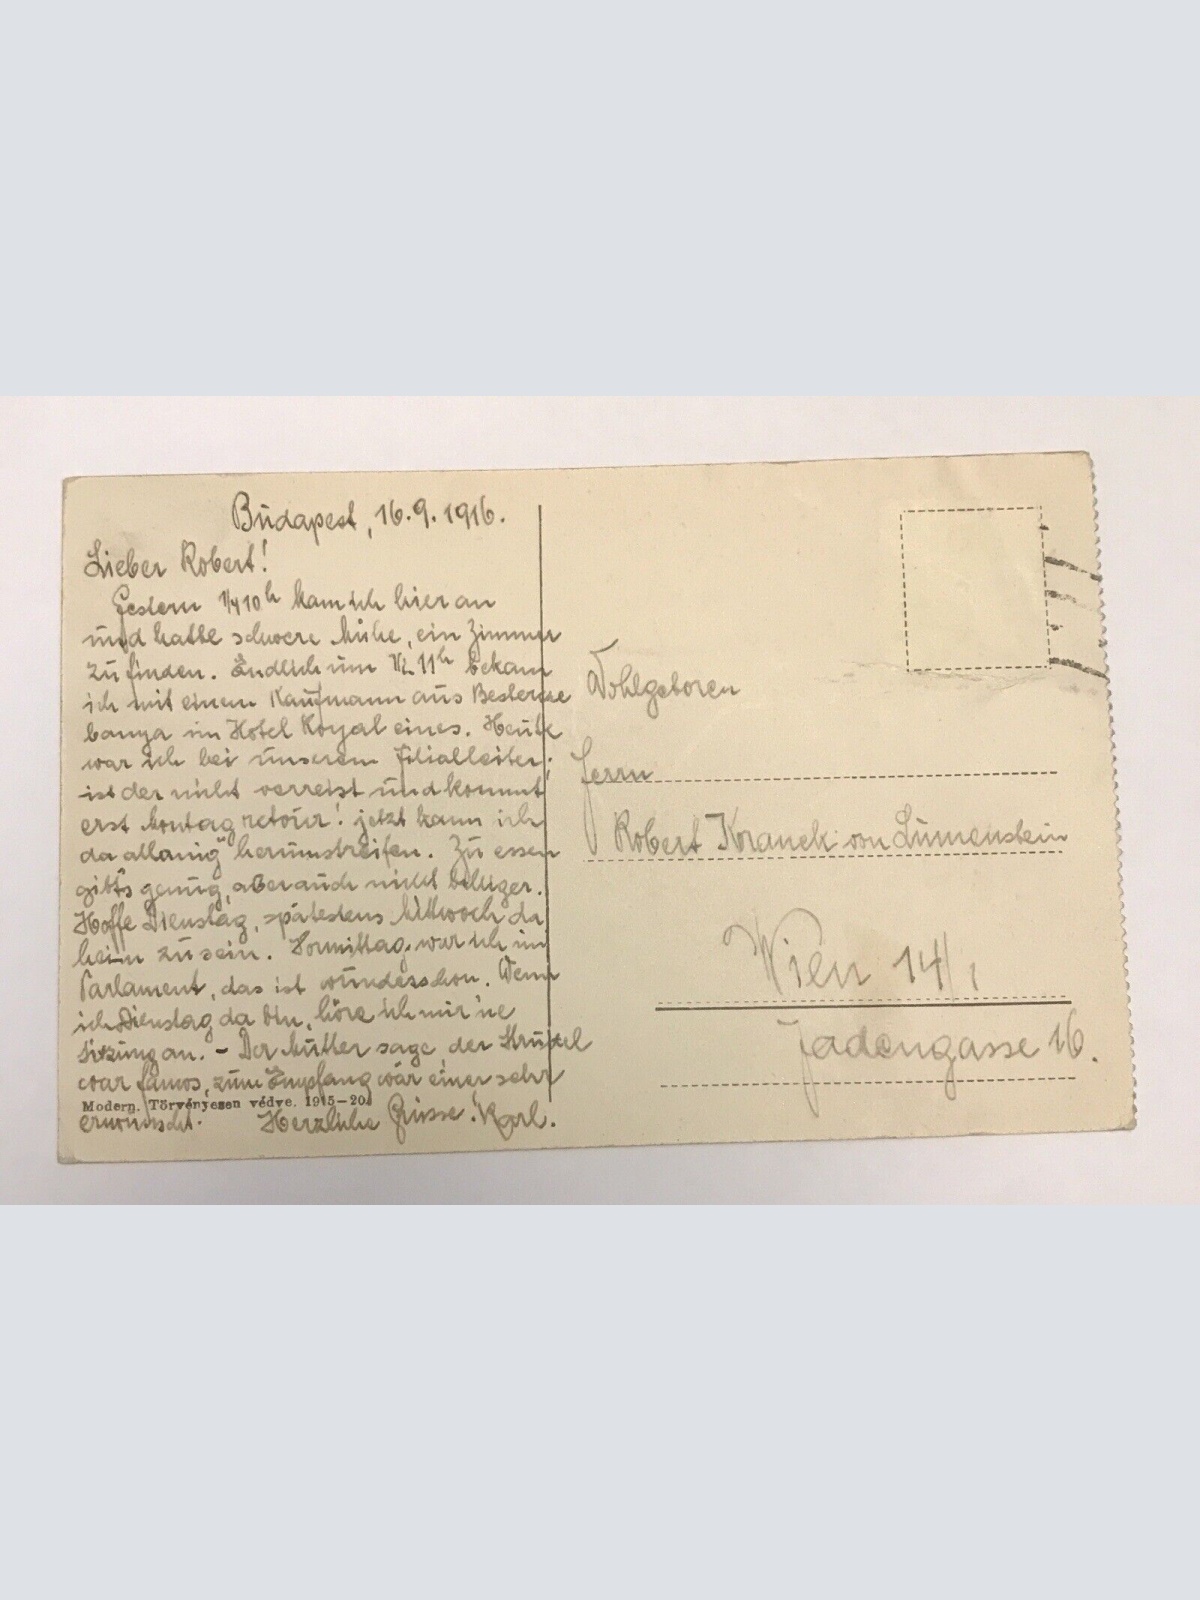 Budapest, 16.9.1916.
Lieber Robert!
Gestern 1/4 10h kam ich hier an
und hatte schwere Mühe, ein Zimmer
zu finden. Endlich um 1/2 11h bekam
ich mit einem Kaufmann aus Besterce
banya im Hotel Royal eines. Heute
war ich bei unserem Filialleiter;
ist der nicht verreist und kommt
erst Montag retour! jetzt kann ich
da "allanig" herumstreifen. Zu essen
gibt's genug, aber auch nicht billiger.
Hoffe Dienstag, spätestens Mittwoch da
heim zu sein. Vormittag war ich im
Parlament, das ist wunderschön. Wenn
ich Dienstag da bin, höre ich mir 'ne
Sitzung an. - Der Mutter sage, der Strudel
war famos, zum Empfang wär einer sehr
Modern. Törvényesen védve. 1915-20.
erwünscht. Herzliche Grüsse. Karl.
Wohlgeboren
Herrn
Robert Kranek von Lümenstein
Wien 14/1
Jadengasse 16.